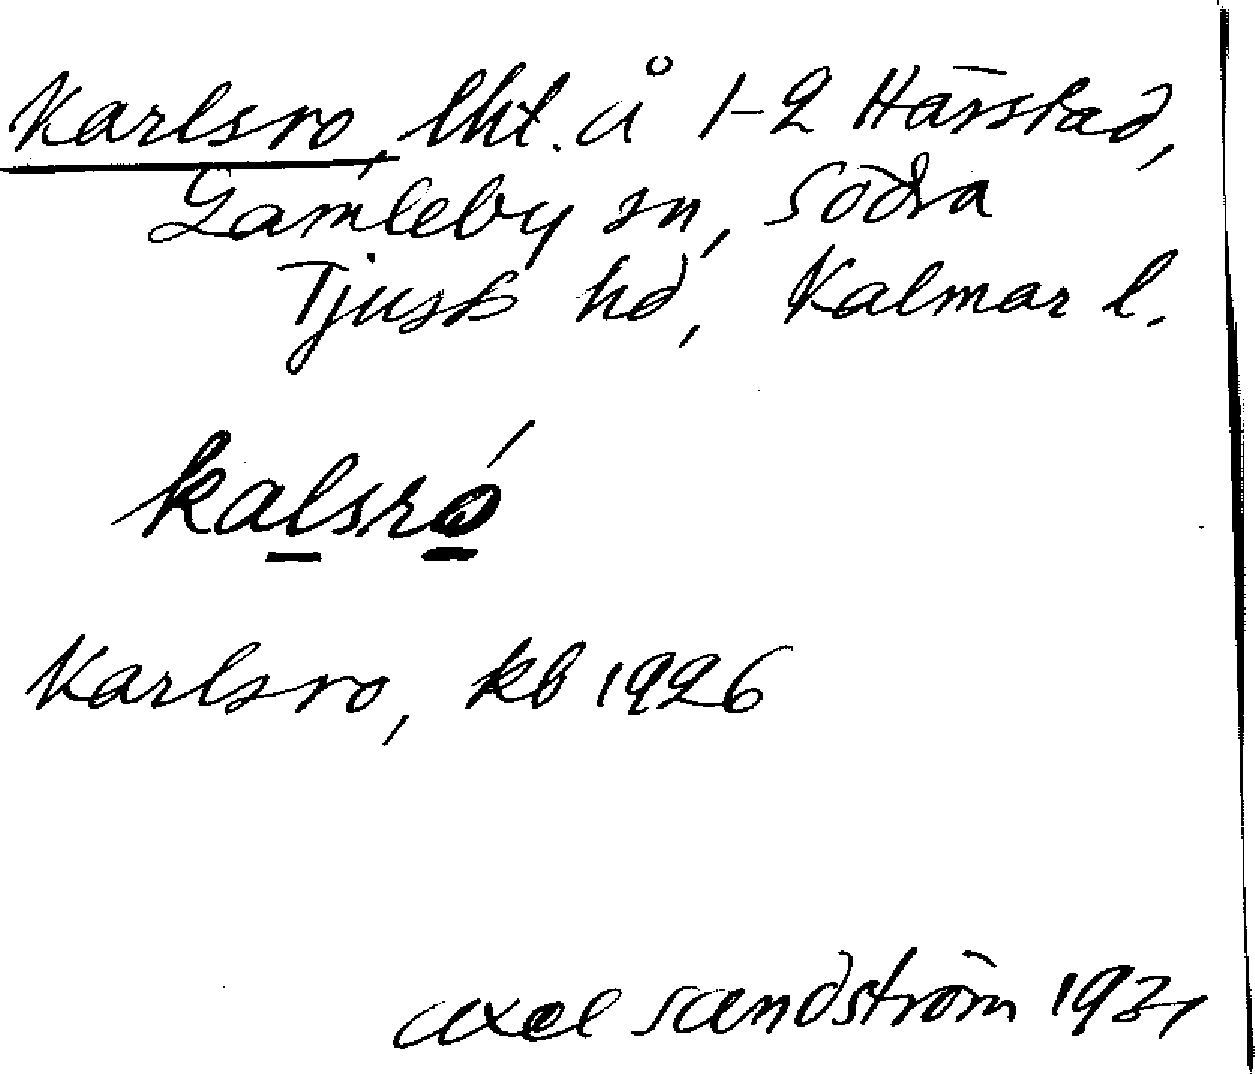 Karlsro, lht. å 1-2 Härstad,
Gamleby sn, Södra
Tjust hd, Kalmar l.
kalsró
Karlsro, kb 1926
Axel Sandström